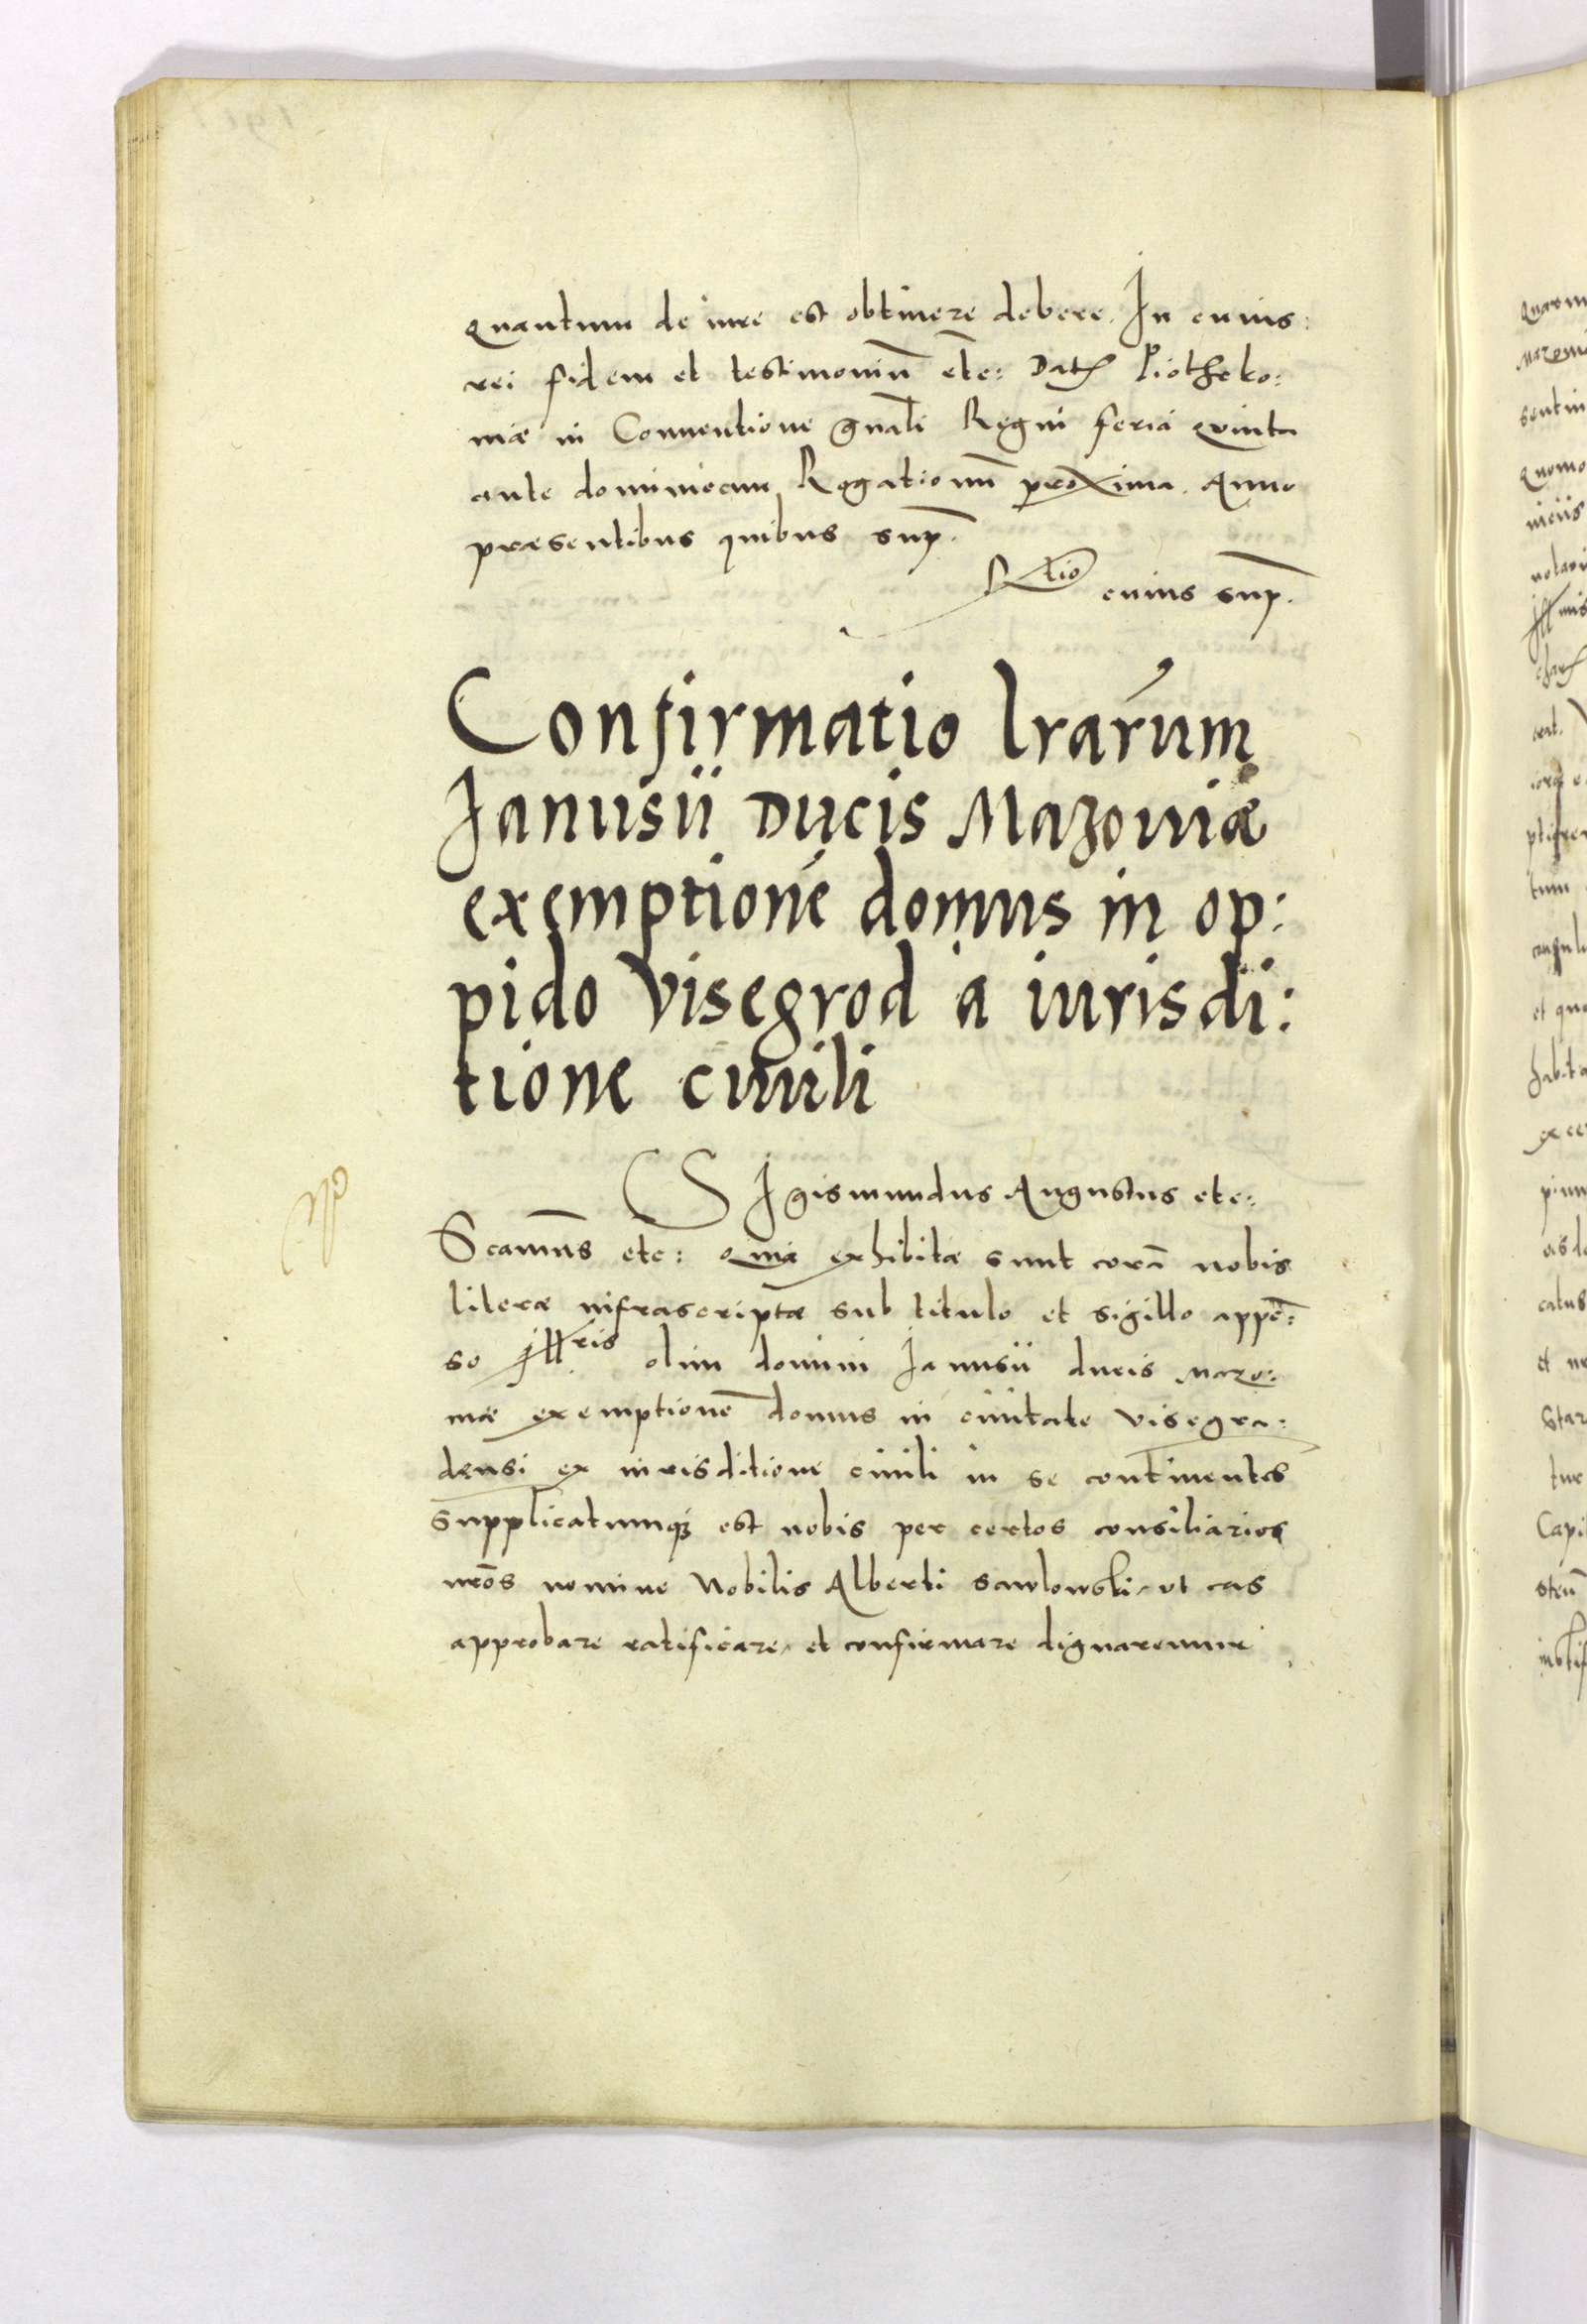 quantum de iure est obtinere debere. In cuius
rei fidem et testimoniū etc: Datę Piotrkо:
uiæ in Conuentione gńali Regni feria quinta
ante dominicam Rogationū proxima. Anno
præsentibus quibus sup̄.
Rtio cuius sup̄.
Confirmatio lrarum
Janusii Ducis Mazouiæ
exemptione domus in op:
pido Visegrod a iurisdi:
tione ciuili
SIgismundus Augustus etc:
Scamus etc: Quia exhibitæ sunt corā nobis
literæ infrascriptæ sub titulo et sigillo appē:
so Jllris olim domini Janusii ducis Mazo:
uiæ exemptionē domus in ciuitate Visegra:
densi ex iurisditione ciuili in se continentes
supplicatumq; est nobis per certos consiliarios
nrōs nomine Nobilis Alberti Sawlowski, ut eas
approbare ratificare, et confirmare dignaremur